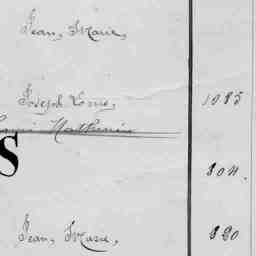 Jean, Marie,
Joseph Louis, 1085
Mathurin
S 804.
Jean, Marie, 820